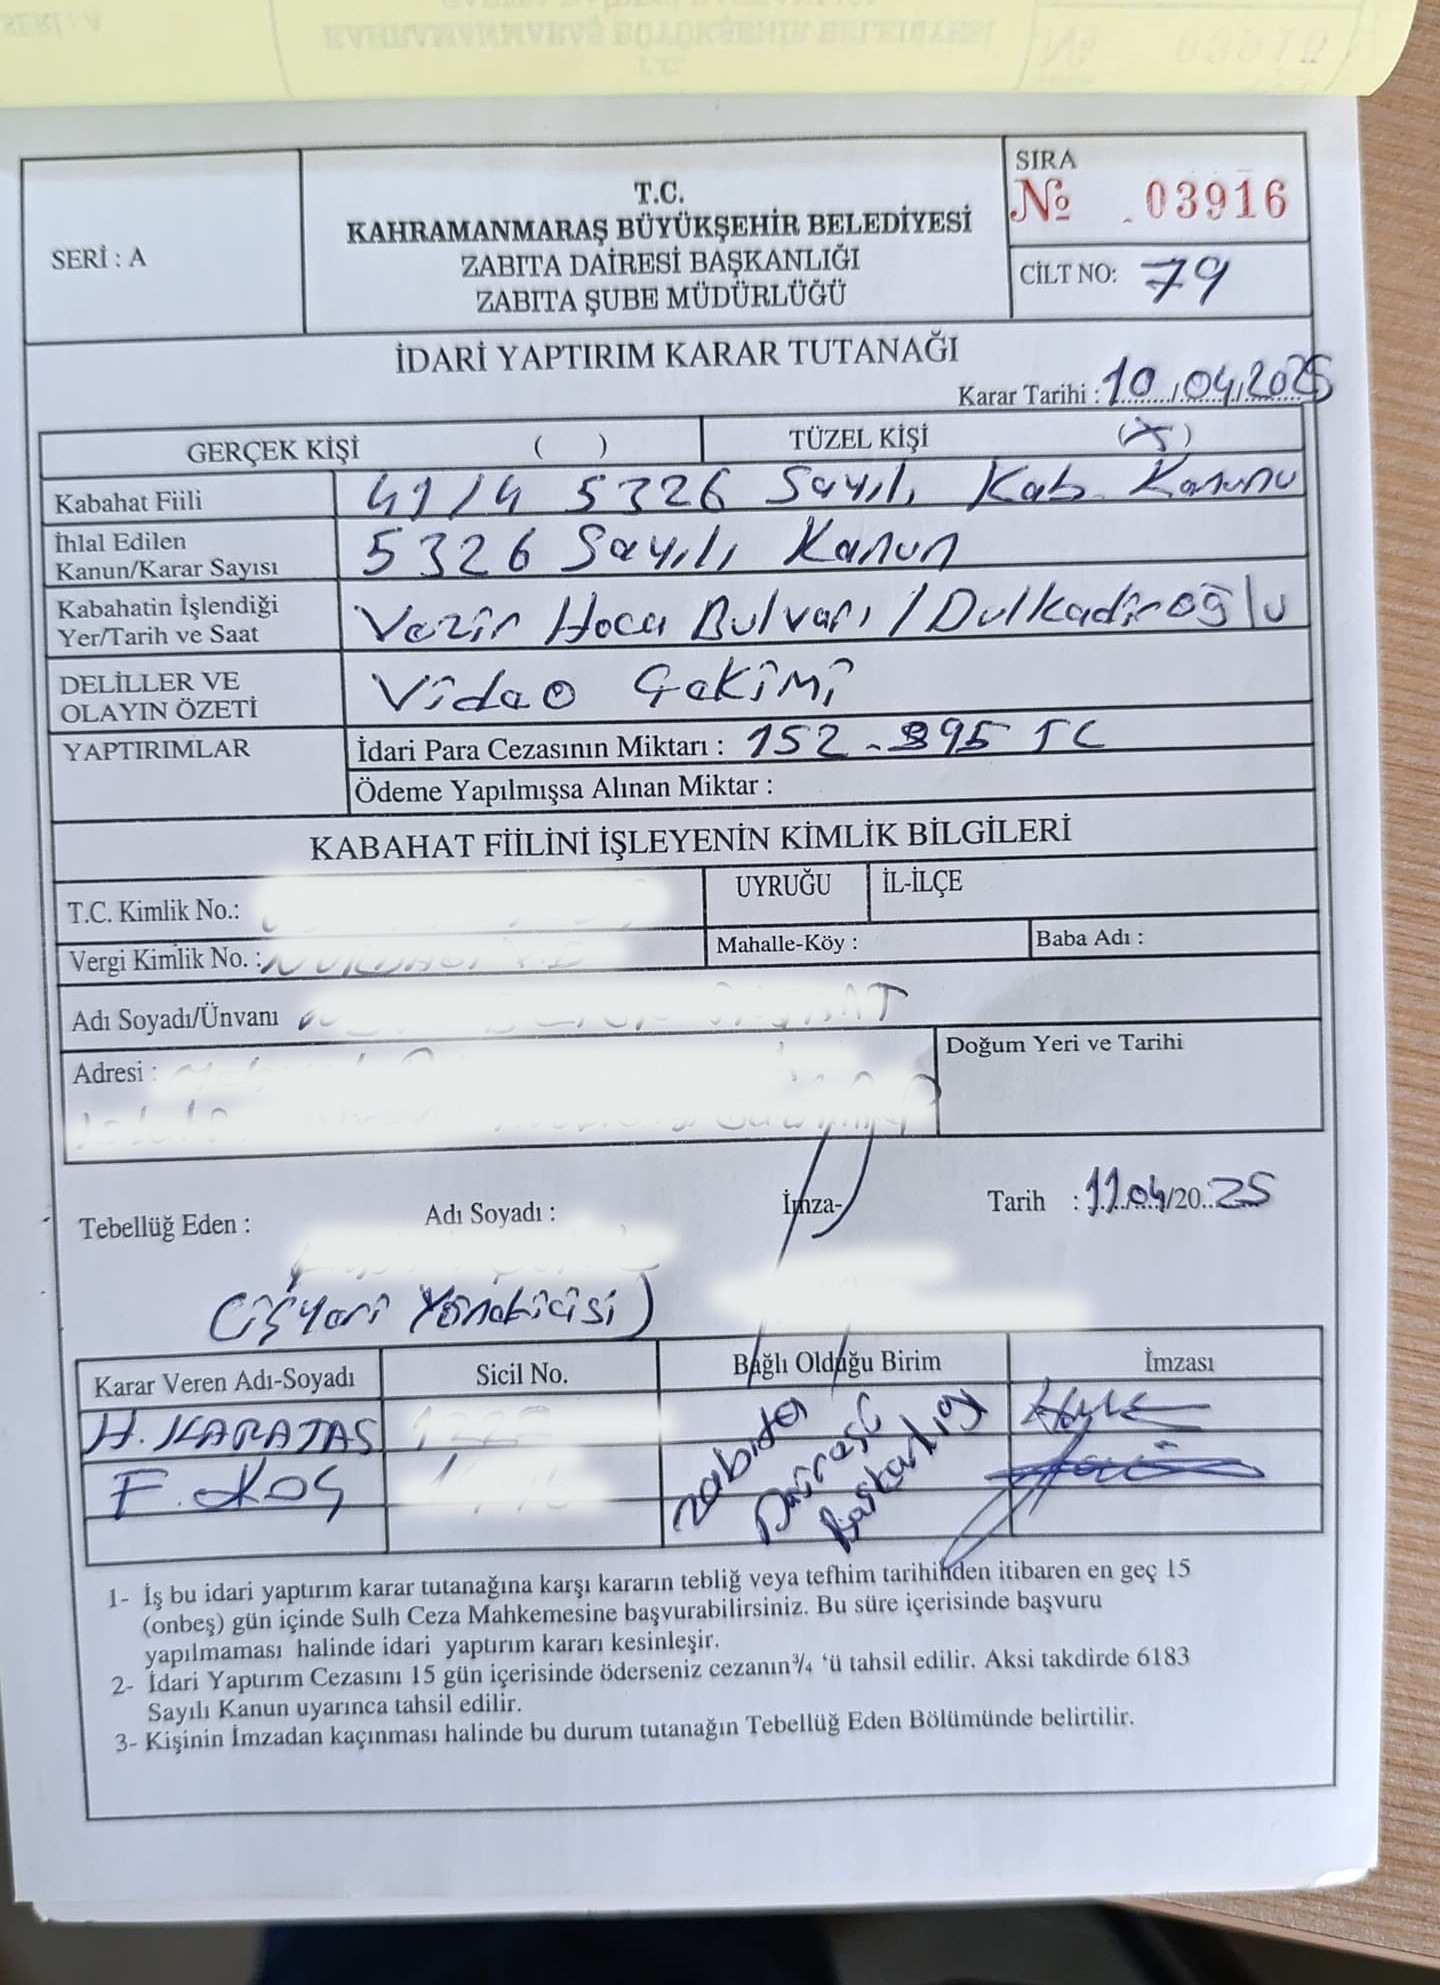 SERİ : A
T.C.
KAHRAMANMARAŞ BÜYÜKŞEHİR BELEDİYESİ
ZABITA DAİRESİ BAŞKANLIĞI
ZABITA ŞUBE MÜDÜRLÜĞÜ
SIRA
№ 03916
CİLT NO: 79
İDARİ YAPTIRIM KARAR TUTANAĞI
Karar Tarihi : 10/04/2025
GERÇEK KİŞİ ( ) TÜZEL KİŞİ (X)
Kabahat Fiili 41/4 5326 Sayılı Kab. Kanunu
İhlal Edilen
Kanun/Karar Sayısı 5326 Sayılı Kanun
Kabahatin İşlendiği
Yer/Tarih ve Saat Vezir Hoca Bulvarı / Dulkadiroğlu
DELİLLER VE
OLAYIN ÖZETİ Video Çekimi
YAPTIRIMLAR
İdari Para Cezasının Miktarı : 152.895 TL
Ödeme Yapılmışsa Alınan Miktar :
KABAHAT FİİLİNİ İŞLEYENİN KİMLİK BİLGİLERİ
T.C. Kimlik No.: UYRUĞU İL-İLÇE
Vergi Kimlik No. : Mahalle-Köy : Baba Adı :
Adı Soyadı/Ünvanı
Adresi : Doğum Yeri ve Tarihi
Tebellüğ Eden : Adı Soyadı : İmza- Tarih : 11.04/2025
(İşyeri Yöneticisi)
Karar Veren Adı-Soyadı Sicil No. Bağlı Olduğu Birim İmzası
H. KARATAŞ
F. KOŞ
Zabıta
Dairesi
Başkanlığı
1- İş bu idari yaptırım karar tutanağına karşı kararın tebliğ veya tefhim tarihinden itibaren en geç 15
(onbeş) gün içinde Sulh Ceza Mahkemesine başvurabilirsiniz. Bu süre içerisinde başvuru
yapılmaması halinde idari yaptırım kararı kesinleşir.
2- İdari Yaptırım Cezasını 15 gün içerisinde öderseniz cezanın ¾ 'ü tahsil edilir. Aksi takdirde 6183
Sayılı Kanun uyarınca tahsil edilir.
3- Kişinin İmzadan kaçınması halinde bu durum tutanağın Tebellüğ Eden Bölümünde belirtilir.